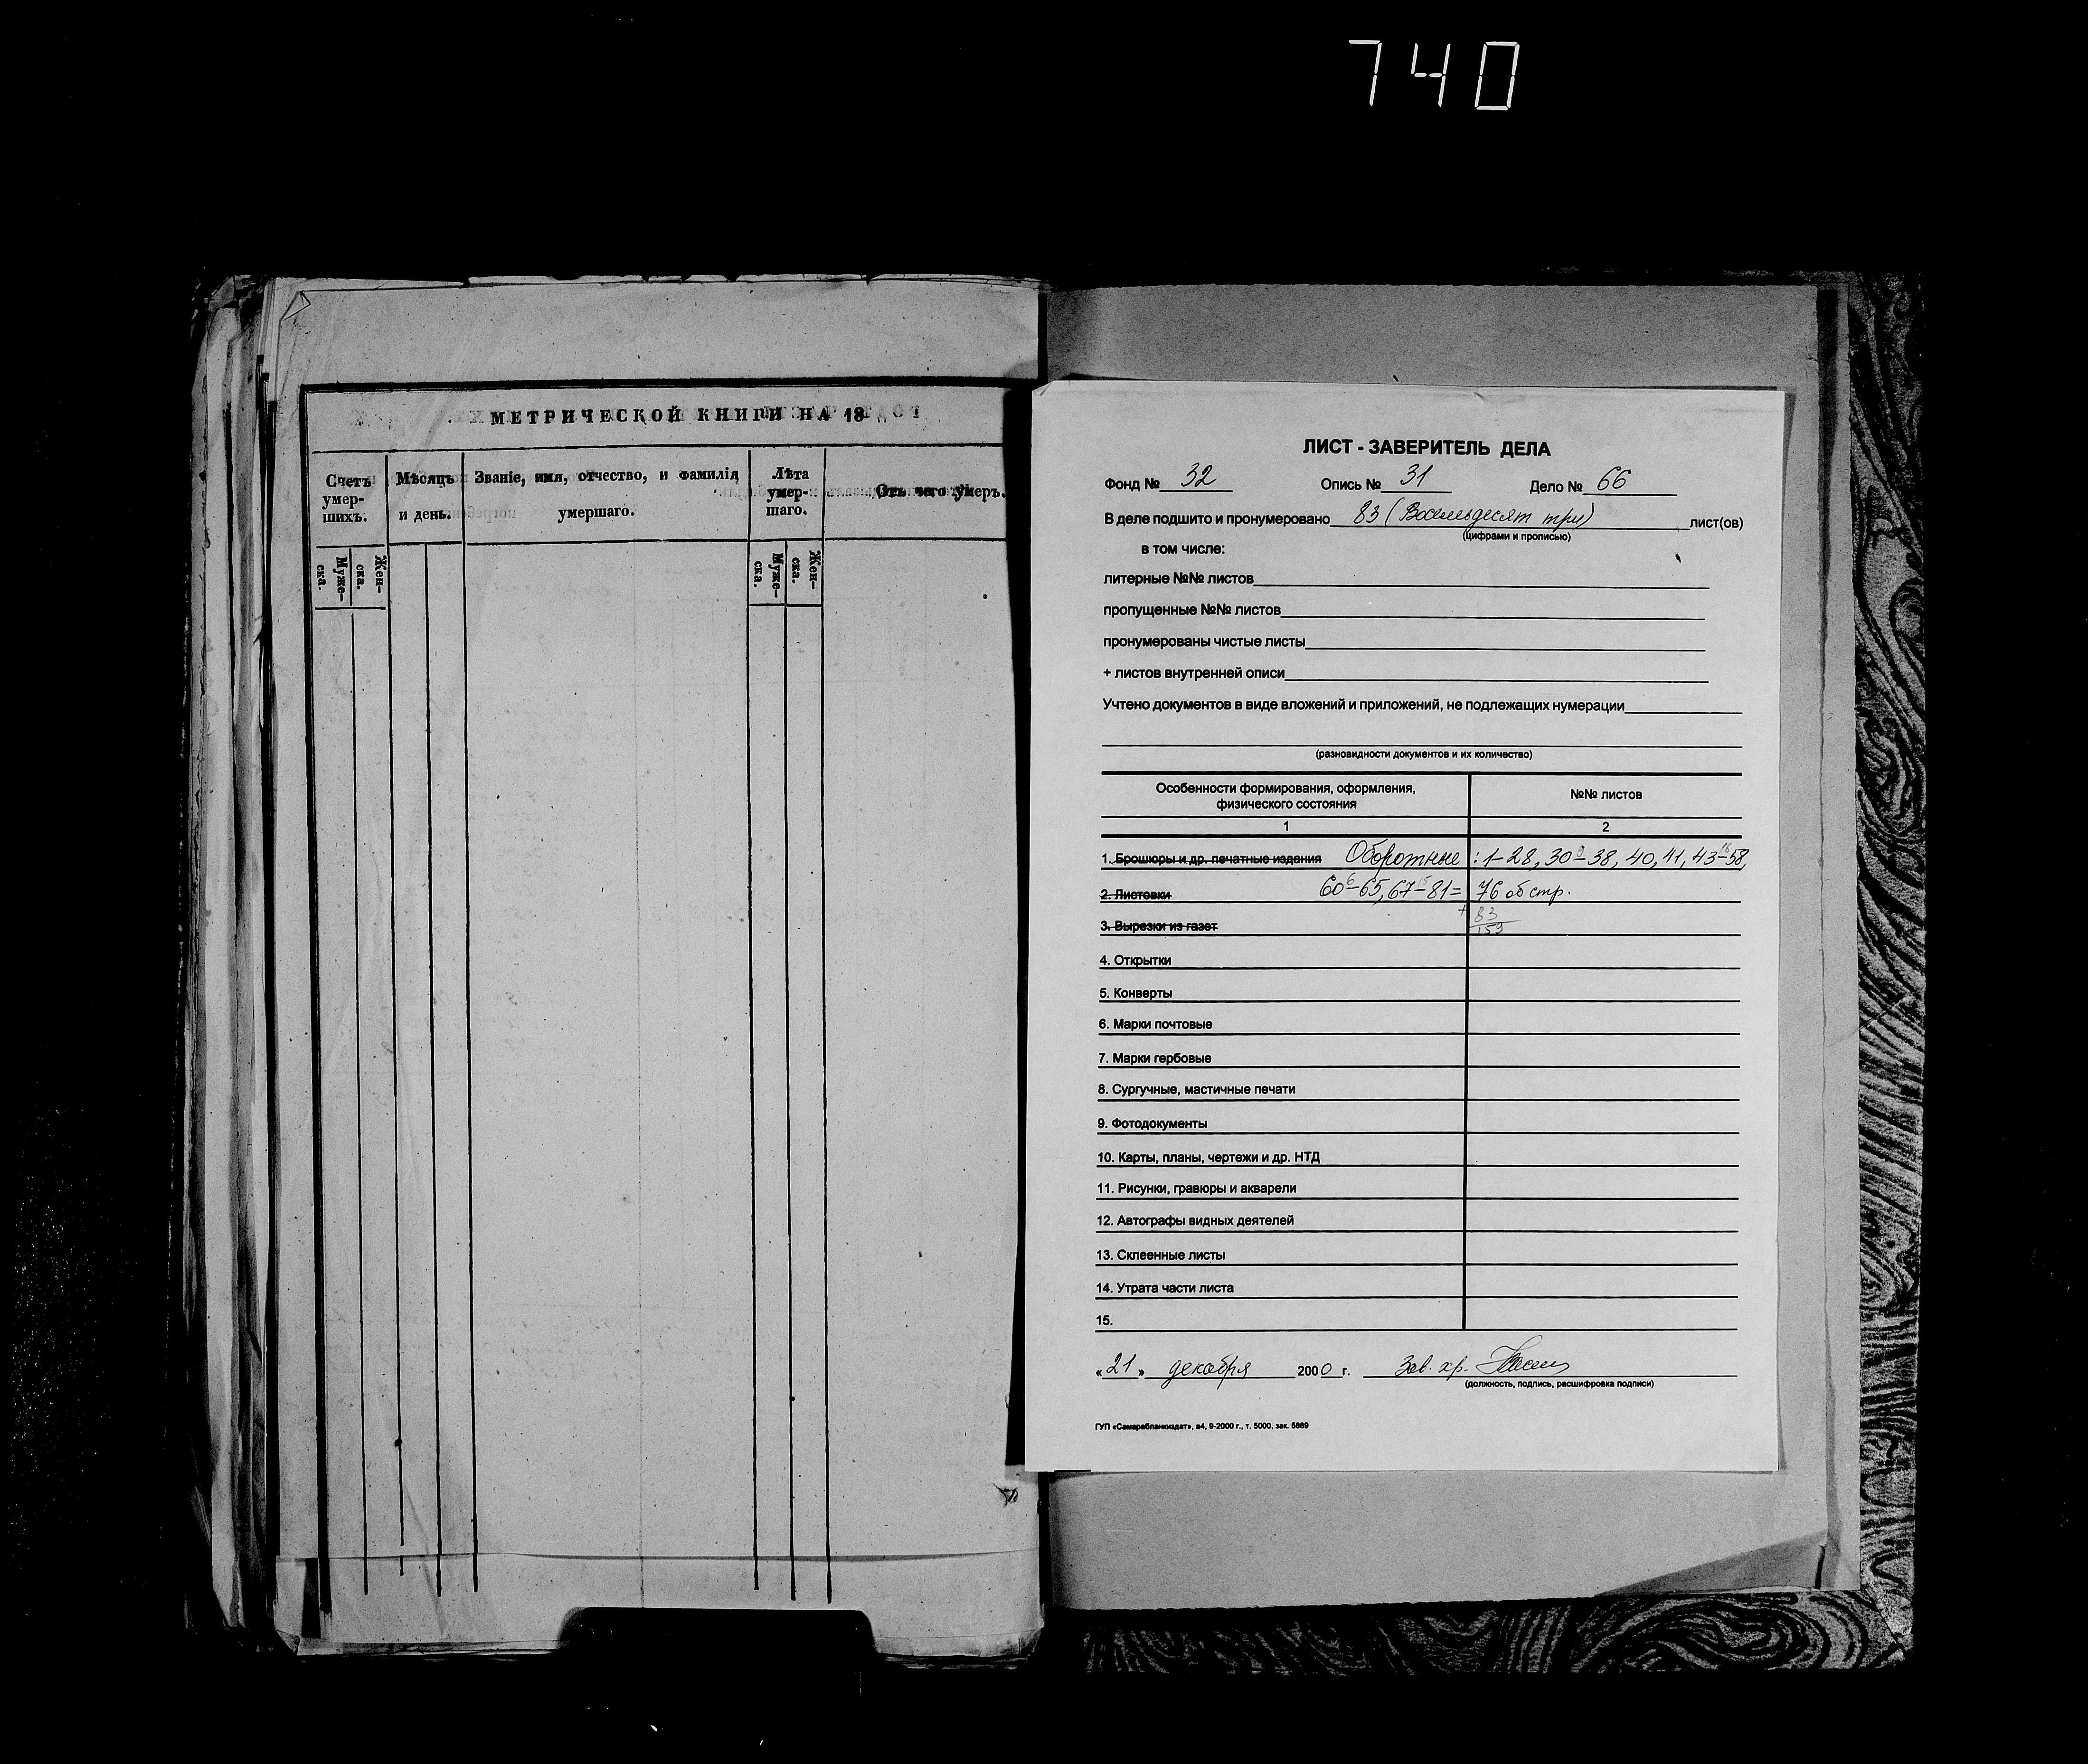 740
МЕТРИЧЕСКОЙ КНИГИ НА 18
Счетъ умер-шихъ.
Муже-ска.
Жен-ска.
Мѣсяцъ и день.
Званіе, имя, отчество, и фамилія умершаго.
Лѣта умер-шаго.
Муже-ска.
Жен-ска.
Отъ чего умеръ.
ЛИСТ - ЗАВЕРИТЕЛЬ ДЕЛА
Фонд № 32 Опись № 31 Дело № 66
В деле подшито и пронумеровано 83 (Восемьдесят три) лист(ов)
(цифрами и прописью)
в том числе:
литерные №№ листов
пропущенные №№ листов
пронумерованы чистые листы
+ листов внутренней описи
Учтено документов в виде вложений и приложений, не подлежащих нумерации
(разновидности документов и их количество)
Особенности формирования, оформления, физического состояния
№№ листов
1 2
1. Брошюры и др. печатные издания Оборотные : 1-28, 30-38, 40, 41, 43-58,
2. Листовки 60-65, 67-81= 76 об стр.
+ 83
3. Вырезки из газет 159
4. Открытки
5. Конверты
6. Марки почтовые
7. Марки гербовые
8. Сургучные, мастичные печати
9. Фотодокументы
10. Карты, планы, чертежи и др. НТД
11. Рисунки, гравюры и акварели
12. Автографы видных деятелей
13. Склеенные листы
14. Утрата части листа
15.
«21» декабря 2000 г. Зав. хр.
(должность, подпись, расшифровка подписи)
ГУП «Самарабланкиздат», а4, 9-2000 г., т. 5000, зак. 5889